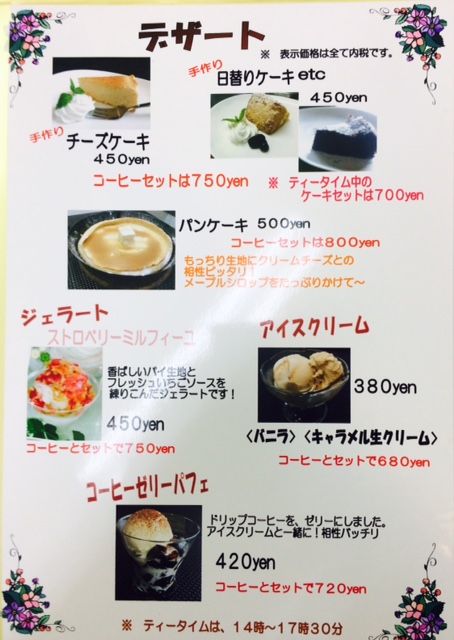 デザート
※ 表示価格は全て内税です。
手作り
チーズケーキ
450yen
手作り
日替りケーキ etc
450yen
コーヒーセットは750yen
※ ティータイム中の
ケーキセットは700yen
パンケーキ 500yen
コーヒーセットは800yen
もっちり生地にクリームチーズとの
相性ピッタリ!
メープルシロップをたっぷりかけて～
ジェラート
ストロベリーミルフィーユ
香ばしいパイ生地と
フレッシュいちごソースを
練りこんだジェラートです!
450yen
コーヒーとセットで750yen
アイスクリーム
380yen
〈バニラ〉〈キャラメル生クリーム〉
コーヒーとセットで680yen
コーヒーゼリーパフェ
ドリップコーヒーを、ゼリーにしました。
アイスクリームと一緒に!相性バッチリ
420yen
コーヒーとセットで720yen
※ ティータイムは、14時～17時30分